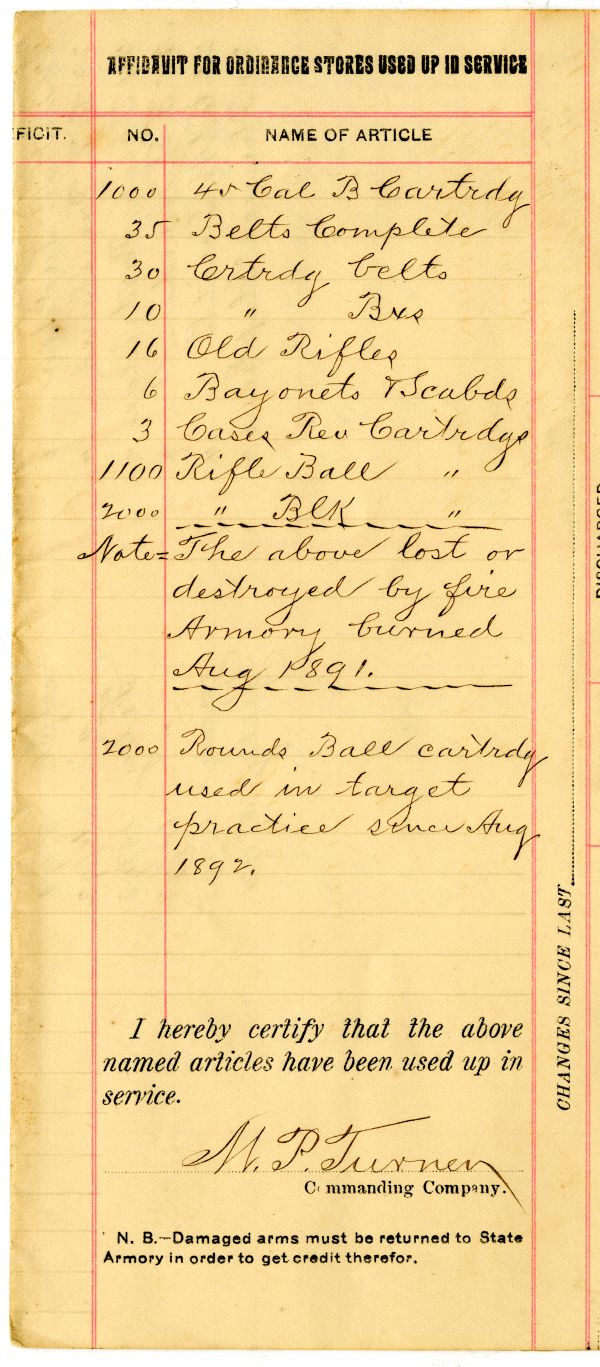 AFFIDAVIT FOR ORDINANCE STORES USED UP IN SERVICE
FICIT. NO. NAME OF ARTICLE
1000 45 Cal B Cartrdg
35 Belts Complete
30 Crtrdg belts
10 " Bxs
16 Old Rifles
6 Bayonets & Scabds
3 Cases Rev Cartrdgs
1100 Rifle Ball "
2000 " Blk "
Note= The above lost or
destroyed by fire
Armory burned
Aug 1891.
2000 Rounds Ball cartrdg
used in target
practice since Aug
1892.
I hereby certify that the above
named articles have been used up in
service.
M. P. Turner
Commanding Company.
N. B.—Damaged arms must be returned to State
Armory in order to get credit therefor.
DISCHARGED
CHANGES SINCE LAST